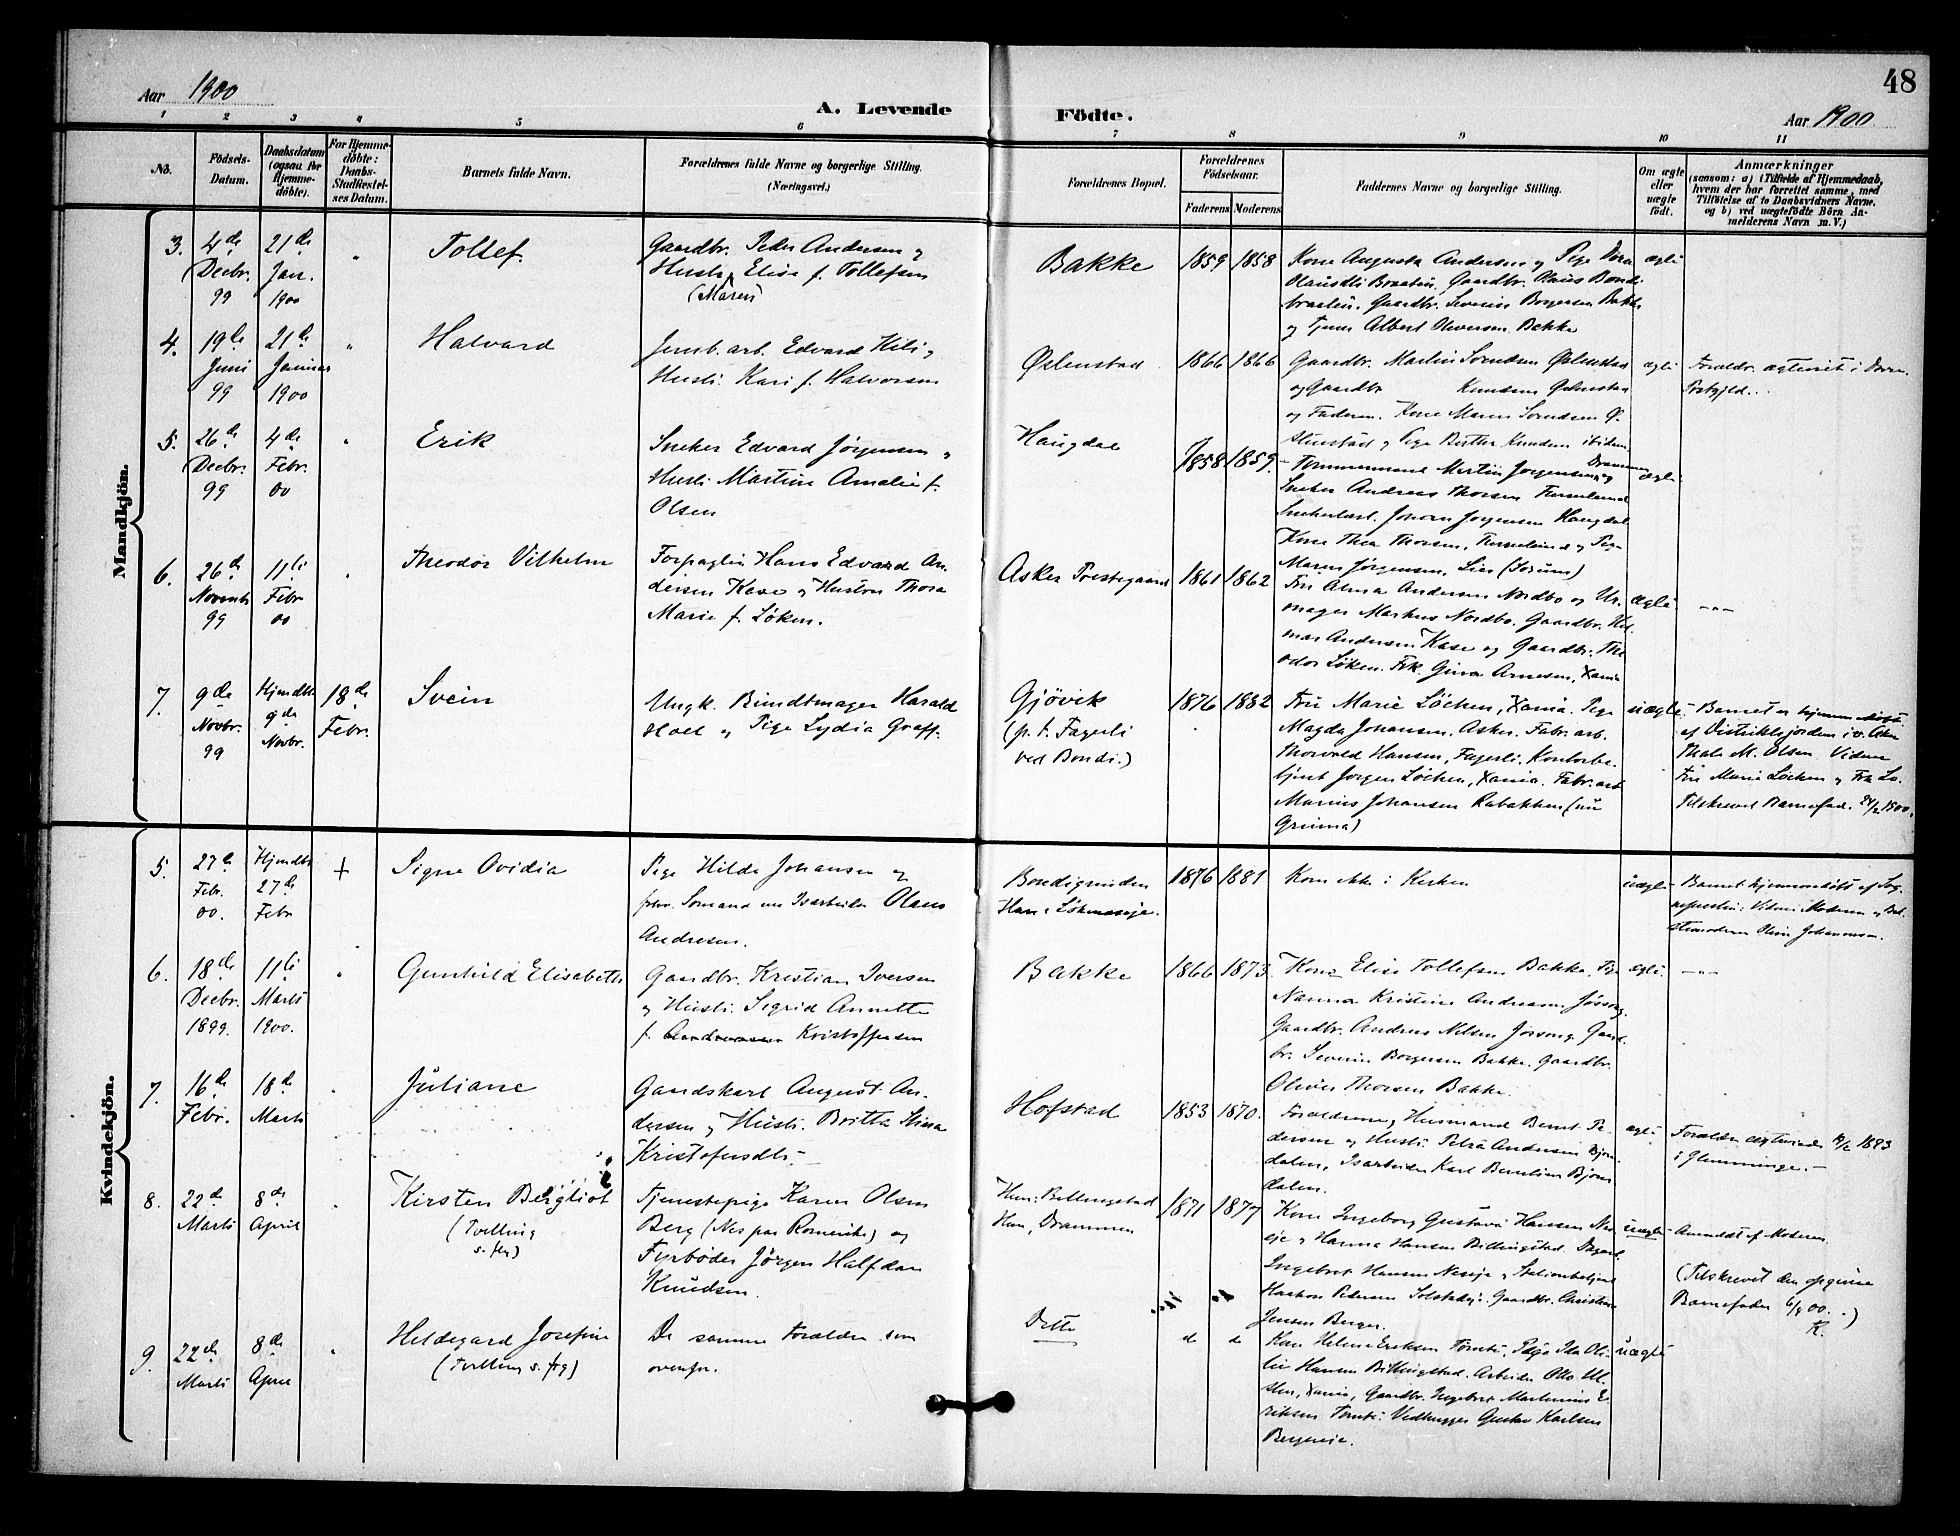 48
Aar 1900
A. Levende
Födte.
Aar 1900
1 2 3 4 5 6 7 8 9 10 11
No.
Födsels-Datum.
Daabsdatum (ogsaa for Hjemme-döbte).
For Hjemme-döbte: Daabs-Stadfæstel-ses Datum.
Barnets fulde Navn.
Forældrenes fulde Navne og borgerlige Stilling. (Næringsvei.)
Forældrenes Bopæl.
Forældrenes Födselsaar.
Faderens Moderens
Faddernes Navne og borgerlige Stilling.
Om ægte eller uægte födt.
Anmærkninger
(saasom: a) i Tilfælde af Hjemmedaab,
hvem der har forrettet samme, med
Tilföielse af to Daabsvidners Navne,
og b) ved uægtefödte Börn An-
melderens Navn m. V.)
Mandkjön.
3.
4de Decbr. 99
21de Jan. 1900
"
Tollef
Gaardbr. Peder Andersen og
Hustr. Elise f. Tollefsen
(Maren)
Bakke
1859 1858
Kone Augusta Andersen og Pige
Braaten. Gaardbr. Olaus Bondi-
braaten. Gaardbr. Severin Borgersen Bakke
og Tjener Albert Oliversen Bakke
ægte
4.
19de Juni 99
21de Januar 1900
"
Halvard
Jernb. arb. Edvard
Hustr. Kari f. Halvorsen
1866 1866
Gaardbr. Martin Svendsen
og Gaardbr. Knudsen
og Faderen. Kone Maren Svendsen
og Pige Berthe Knudsen ibidem
ægte
Forældr.
5.
26de Decbr. 99
4de Febr. 00
"
Erik
Sneker Edvard Jørgensen og
Hustr. Martine Amalie f.
Olsen
Haugdal
1858 1859
Tømmermand Martin Jørgensen, Drammen og
Sneker Andreas Thorsen
Snekerarb. Johan Jørgensen Haugdal.
Kone Thea Thorsen, og Pige
Maren Jørgensen, Lier
ægte
6.
26de Novemb. 99
11te Febr 00
"
Theodor Vilhelm
Forpagter Hans Edvard An-
dersen Kase og Hustru Thora
Marie f. Løken.
Asker Prestegaard
1861 1862
Fru Alma Andersen Nordbo og Ur-
mager Markus Nordbo. Gaardbr. Hil-
mar Andersen Kase og Gaardbr. The-
odor Løken. Frk. Gina Arnesen, Xania
ægte
-"-
7.
9de Novbr. 99
Hjemdbt 9de Novbr.
18de Febr.
Svein
Ungk. Bundtmager Harald
Hoel og Pige Lydia Graff.
Gjøvik
(p. t. Fagerli
ved Bondi.)
1876 1882
Fru Marie Løchen, Xania. Pige
Magda Johansen, Asker. Fabr. arb.
Thorvald Hansen, Fagerli. Kontorbe-
tjent Jørgen Løchen, Xania. Fabr. arb
Marius Johansen Rabakken (nu
Grinna)
uægte
Barnet er hjemmedøbt
af Distriktsjordem. i v. Asker
Thale M. Olsen. Vidner
Fru Marie Løchen og Frk
Tilskrevet Barnefad. 24/2 1900.
Kvindekjön.
5.
27de Febr. 00.
Hjemdbt 27de Febr
+
Signe Ovidia
Pige Hilda Johansen og
forhv. Sømand nu Isarbeider Olaus
Andresen.
Bondigrinden
Han: Løkeneseje.
1876 1881
Kom ikke i Kirken
uægte
Barnet hjemmedøbt af Sog-
nepresten: Vidner Moderen og Bed-
stemoderen Oline Johannesen.
6.
18de Decbr. 1899.
11te Marts 1900.
"
Gunhild Elisabeth
Gaardbr. Kristian Iversen
og Hustr. Sigrid Annette
f. Kristoffersen
Bakke
1866 1873
Kone Elise Tollefsen Bakke. Pige
Nanna Kristine Andreasen Jøssong.
Gaardbr. Andreas Nilsen Jøssong. Gaard-
br. Severin Borgersen Bakke. Gaardbr.
Oliver Thorsen Bakke.
ægte
-"-
7.
16de Febr.
18de Marts
"
Juliane
Gaardskarl August An-
dersen og Hustr. Britta Stina
Kristofersdtr.
Hofstad
1853 1870.
Forældrene og Husmand Bernt Pe-
dersen og Hustr. Petra Andersen Bjøn-
dalen, Isarbeider Karl Berntsen Bjøn-
dalen.
ægte
Forældre ægteviede 1893
i Glemminge.
8.
22de Marts
8de April
"
Kirsten Bergliot
(Tvilling
s. flg)
Tjenestepige Karen Olsen
Berg (Nes paa Romerike) og
Fyrbøder Jørgen Halfdan
Knudsen.
Hun: Billingstad
Han, Drammen
1871 1877
Kone Ingeborg Gustava Hansen Nes-
øje og Hanna Hansen Billingstad. Dagarb.
Ingebret Hansen Nesøje og Stationsbetjent
Haakon Pedersen Solstad. Gaardbr. Christian
Jensen Berger.
uægte
Anmeldt af Moderen.
(Tilskrevet den opgivne
Barnefader 6/4 00.)
R.
9.
22de Marts
8de April
"
Hildegard Josefine
(Tvilling s. frg)
De samme Forældre som
ovenfor.
Dette
d d
Kone Helene Eriksen Tomte, Pige Ida Oli-
vie Hansen Billingstad. Arbeider Otto
Xania, Gaardbr. Ingebret Martinius E-
riksen Tomte. Vedhugger Gustav Karlsen
Bergereie.
uægte